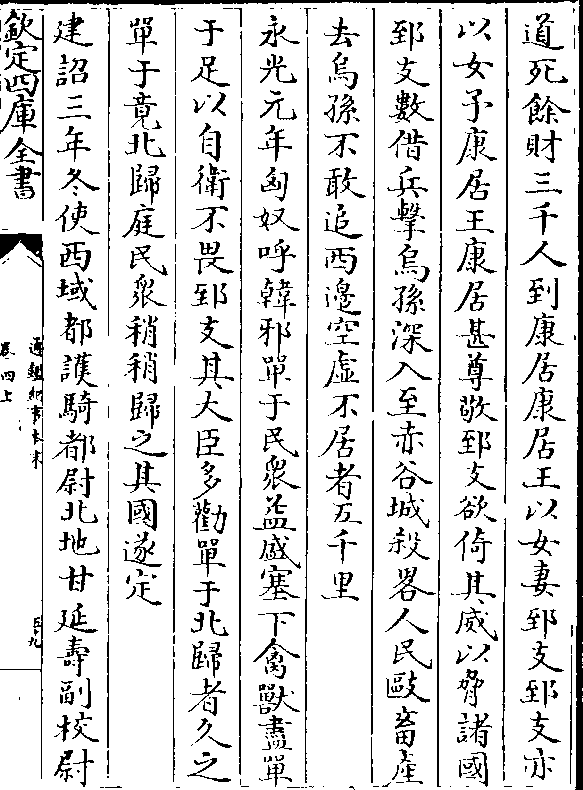 道死餘財三千人到康居康居王以女妻郅支郅支亦
以女予康居王康居甚尊敬郅支欲倚其威以脅諸國
郅支數借兵擊烏孫深入至赤谷城殺畧人民敺畜産
去烏孫不敢追西邉空虚不居者五千里
永光元年匈奴呼韓邪單于民衆益盛塞下禽獸盡單
于足以自衛不畏郅支其大臣多勸單于北歸者久之
單于竟北歸庭民衆稍稍歸之其國遂定
建詔三年冬使西域都護騎都尉北地甘延壽副校尉
欽定四庫全書
通鑑紀事本末
卷四上
五十九